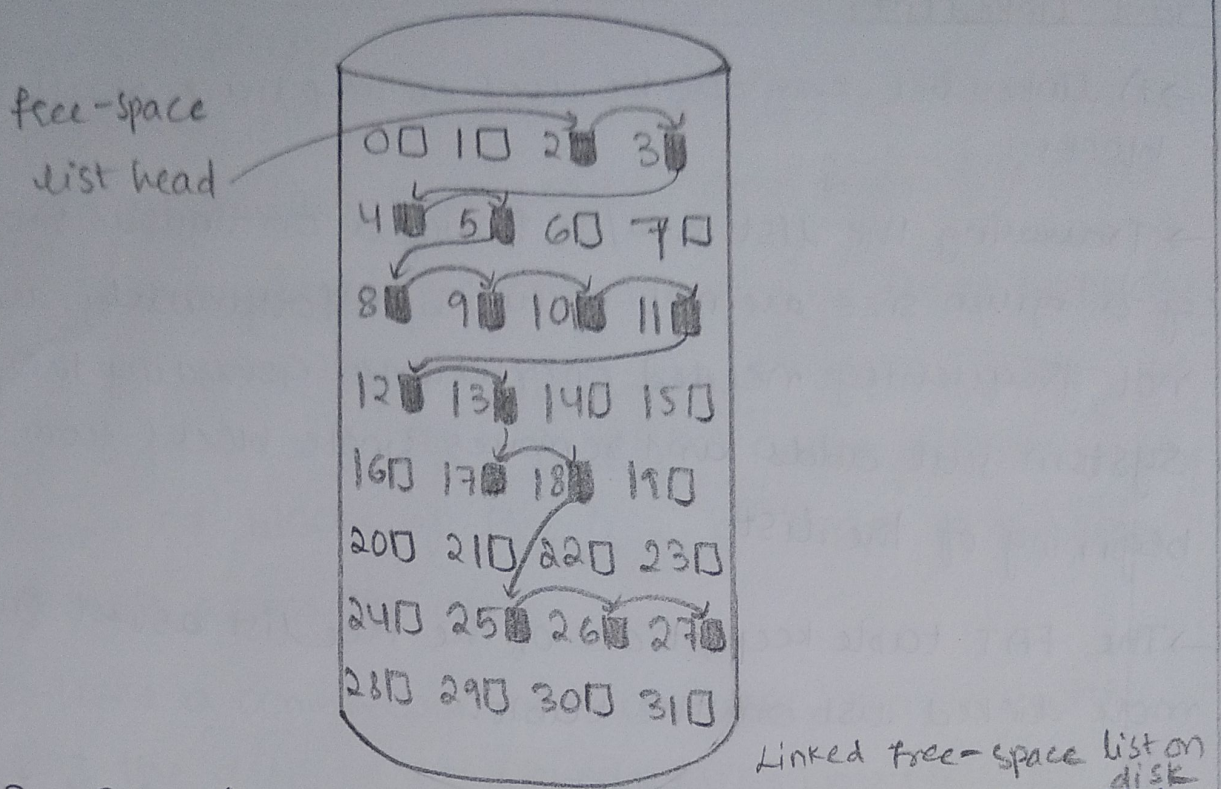 free-space
list head
0 1 2 3
4 5 6 7
8 9 10 11
12 13 14 15
16 17 18 19
20 21 22 23
24 25 26 27
28 29 30 31
Linked free-space list on
disk